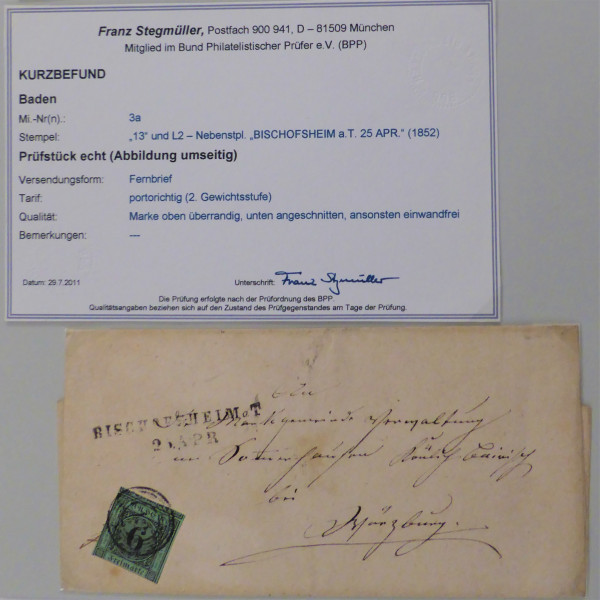 Franz Stegmüller, Postfach 900 941, D – 81509 München
Mitglied im Bund Philatelistischer Prüfer e.V. (BPP)
KURZBEFUND
Baden
Mi.-Nr(n).: 3a
Stempel: „13" und L2 – Nebenstpl. „BISCHOFSHEIM a.T. 25 APR." (1852)
Prüfstück echt (Abbildung umseitig)
Versendungsform: Fernbrief
Tarif: portorichtig (2. Gewichtsstufe)
Qualität: Marke oben überrandig, unten angeschnitten, ansonsten einwandfrei
Bemerkungen: ---
Datum: 29.7.2011 Unterschrift: Franz Stegmüller
Die Prüfung erfolgte nach der Prüfordnung des BPP.
Qualitätsangaben beziehen sich auf den Zustand des Prüfgegenstandes am Tage der Prüfung.
An
BISCHOFSHEIM a T
25 APR
Verwaltung
Sommerhausen Königlich Bairisch
bei
Würzburg.
6
Freimarke